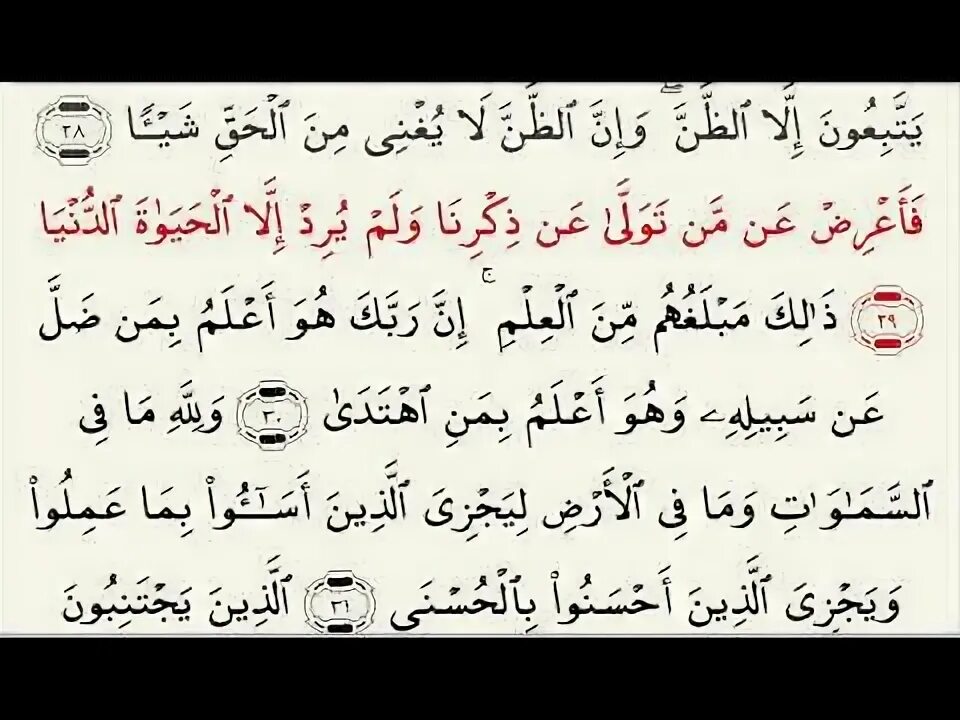 يَتَّبِعُونَ إِلَّا ٱلظَّنَّ ۖ وَإِنَّ ٱلظَّنَّ لَا يُغْنِى مِنَ ٱلْحَقِّ شَيْـًٔا ٢٨
فَأَعْرِضْ عَن مَّن تَوَلَّىٰ عَن ذِكْرِنَا وَلَمْ يُرِدْ إِلَّا ٱلْحَيَوٰةَ ٱلدُّنْيَا
٢٩ ذَٰلِكَ مَبْلَغُهُم مِّنَ ٱلْعِلْمِ ۚ إِنَّ رَبَّكَ هُوَ أَعْلَمُ بِمَن ضَلَّ
عَن سَبِيلِهِۦ وَهُوَ أَعْلَمُ بِمَنِ ٱهْتَدَىٰ ٣٠ وَلِلَّهِ مَا فِى
ٱلسَّمَـٰوَٰتِ وَمَا فِى ٱلْأَرْضِ لِيَجْزِىَ ٱلَّذِينَ أَسَـٰٓـُٔوا۟ بِمَا عَمِلُوا۟
وَيَجْزِىَ ٱلَّذِينَ أَحْسَنُوا۟ بِٱلْحُسْنَى ٣١ ٱلَّذِينَ يَجْتَنِبُونَ